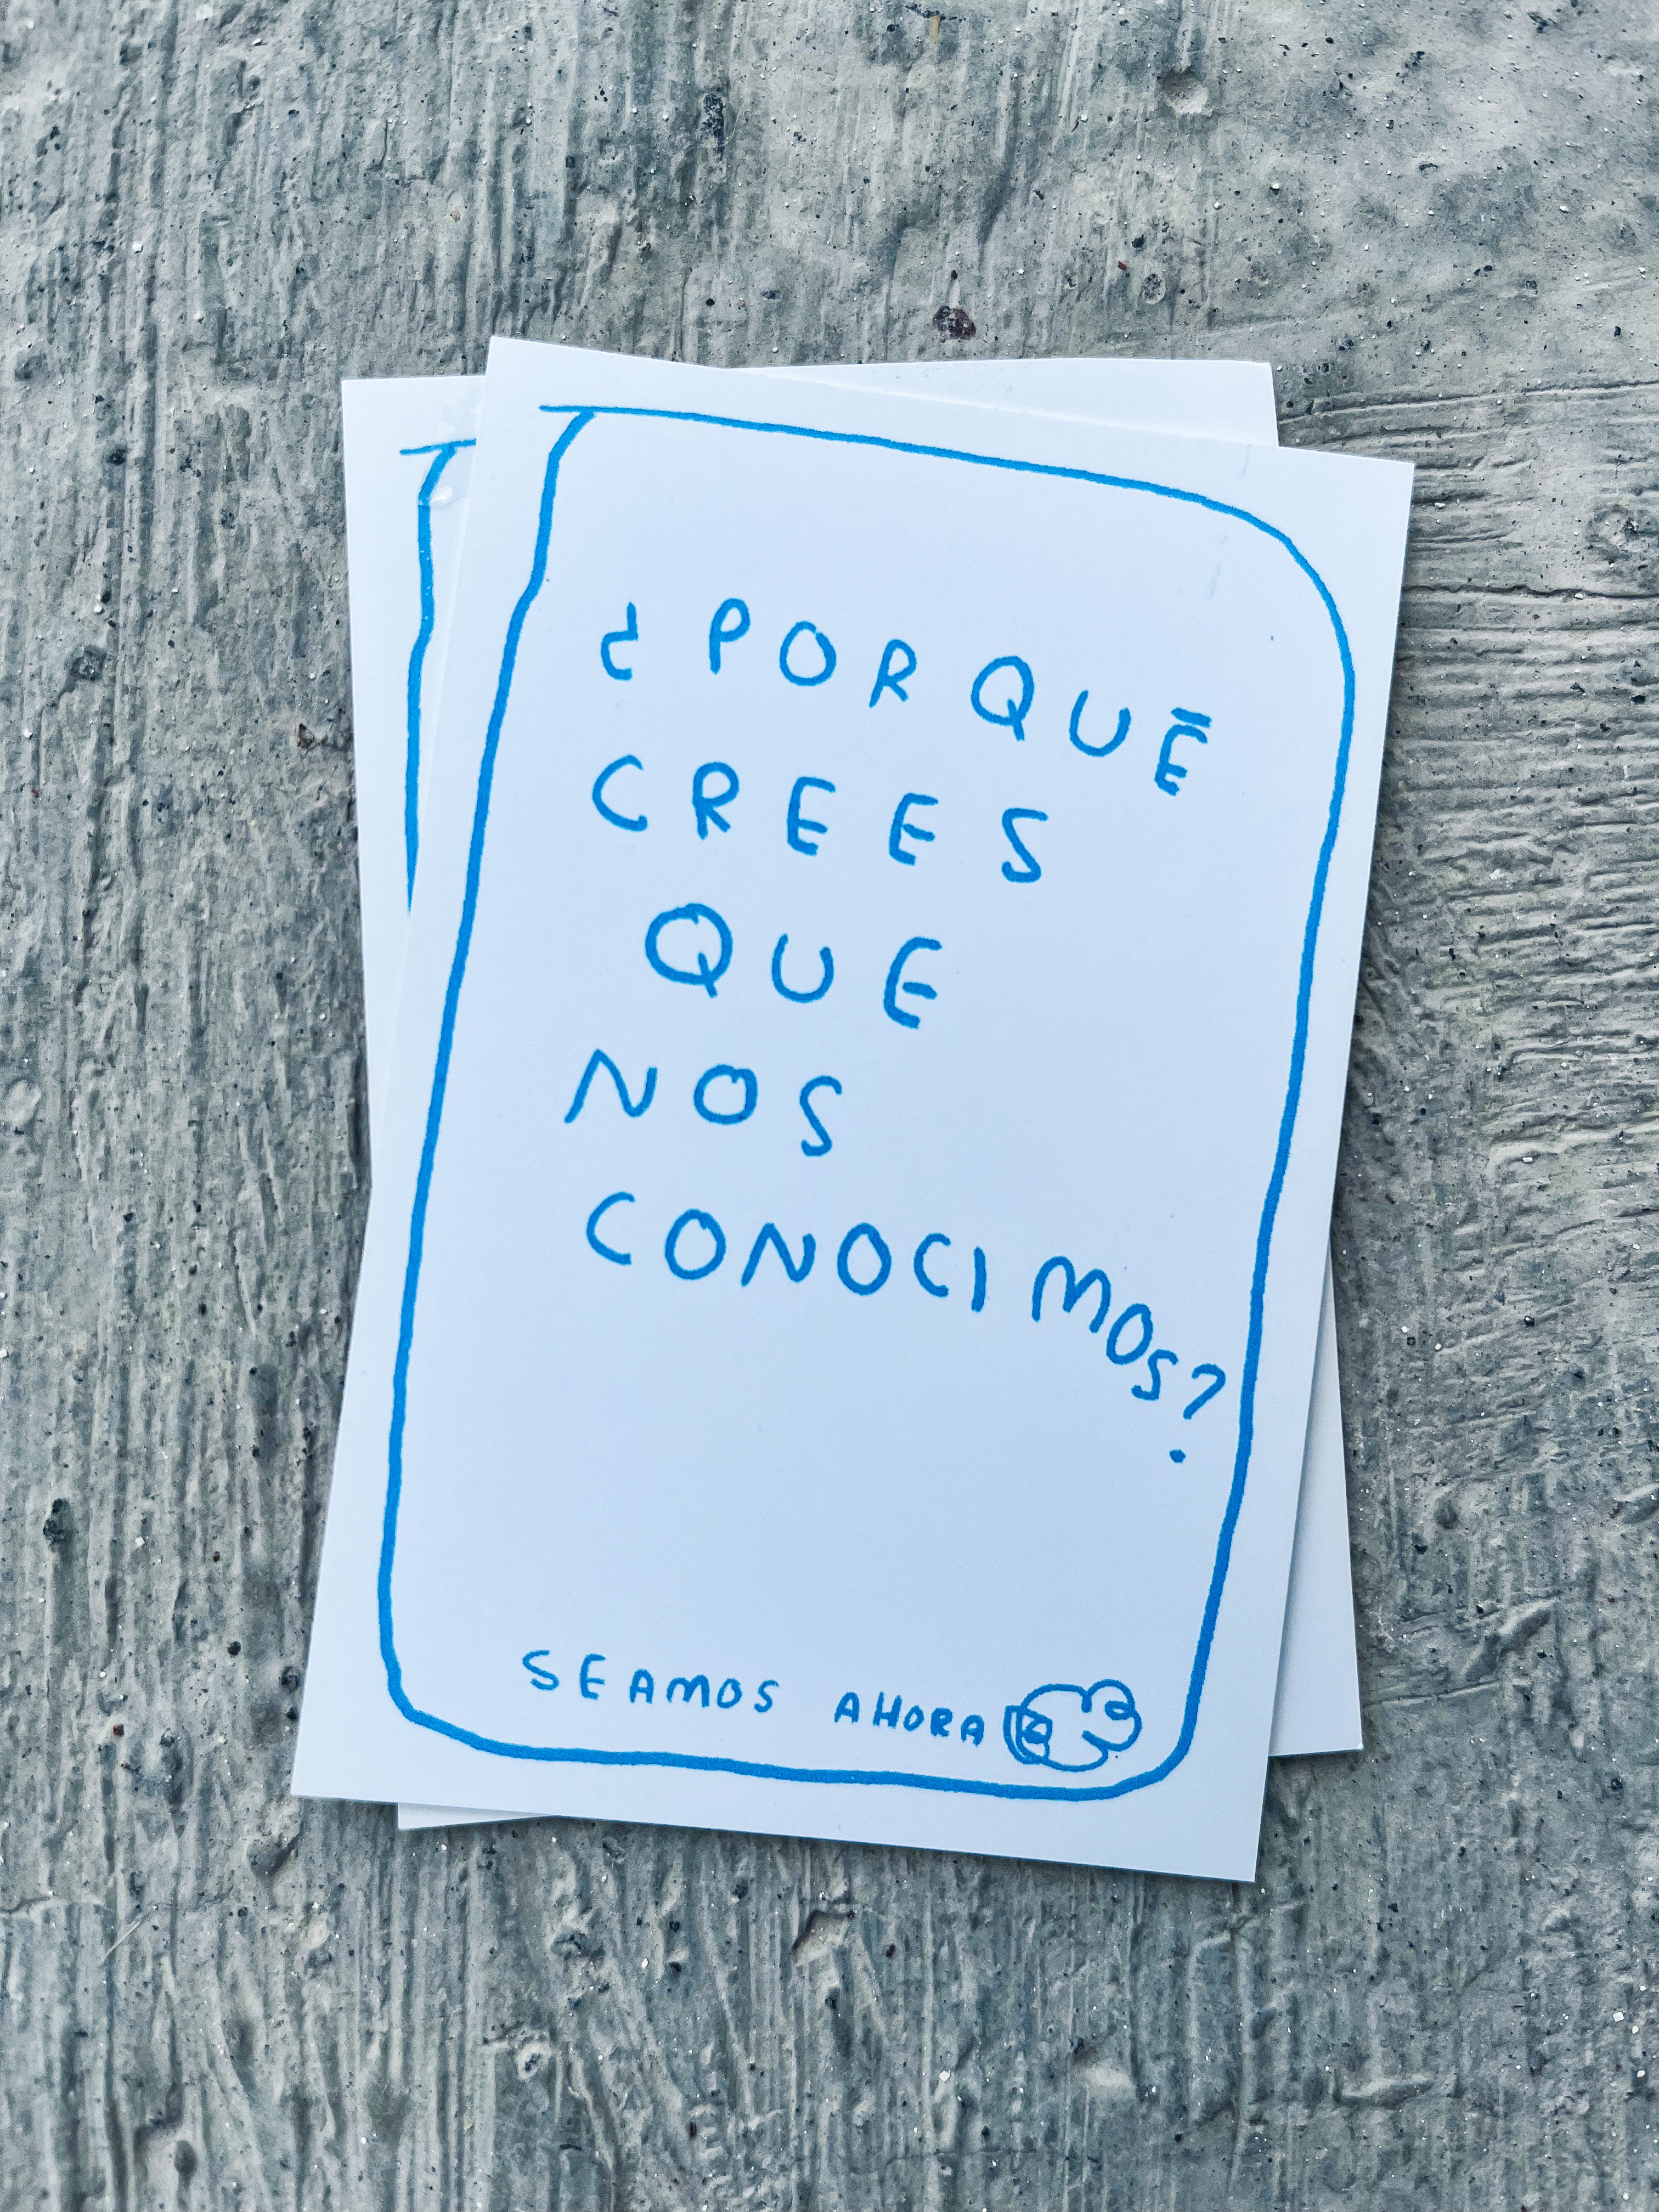 ¿POR QUÉ
CREES
QUE
NOS
CONOCIMOS?
SEAMOS AHORA